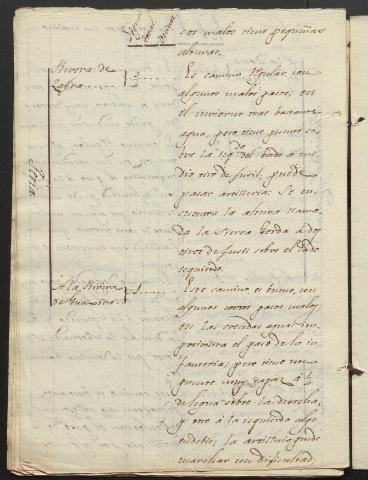 sos malos tiene pequeñas
alturas.
Rivera de
Lafra
Es camino regular con
algunos malos pasos; en
el invierno trae bastante
agua, pero tiene puente so-
bre la izq.da del bado á me-
dio tiro de fusil, puede
pasar artilleria: Se en-
cuentra la altura llama-
da la Sierra Gorda á dos
tiros de fusil sobre el lado
izquierdo.
Á la Rivera
1
Este camino es bueno, con
algunos cortos pasos malos,
en las crecidas aguas im-
el paso de la in-
fanteria; pero tiene un
puente muy capaz á 1/4
de legua sobre la derecha,
y otro á la izquierda algo
endeble; la artilleria puede
marchar con dificultad.